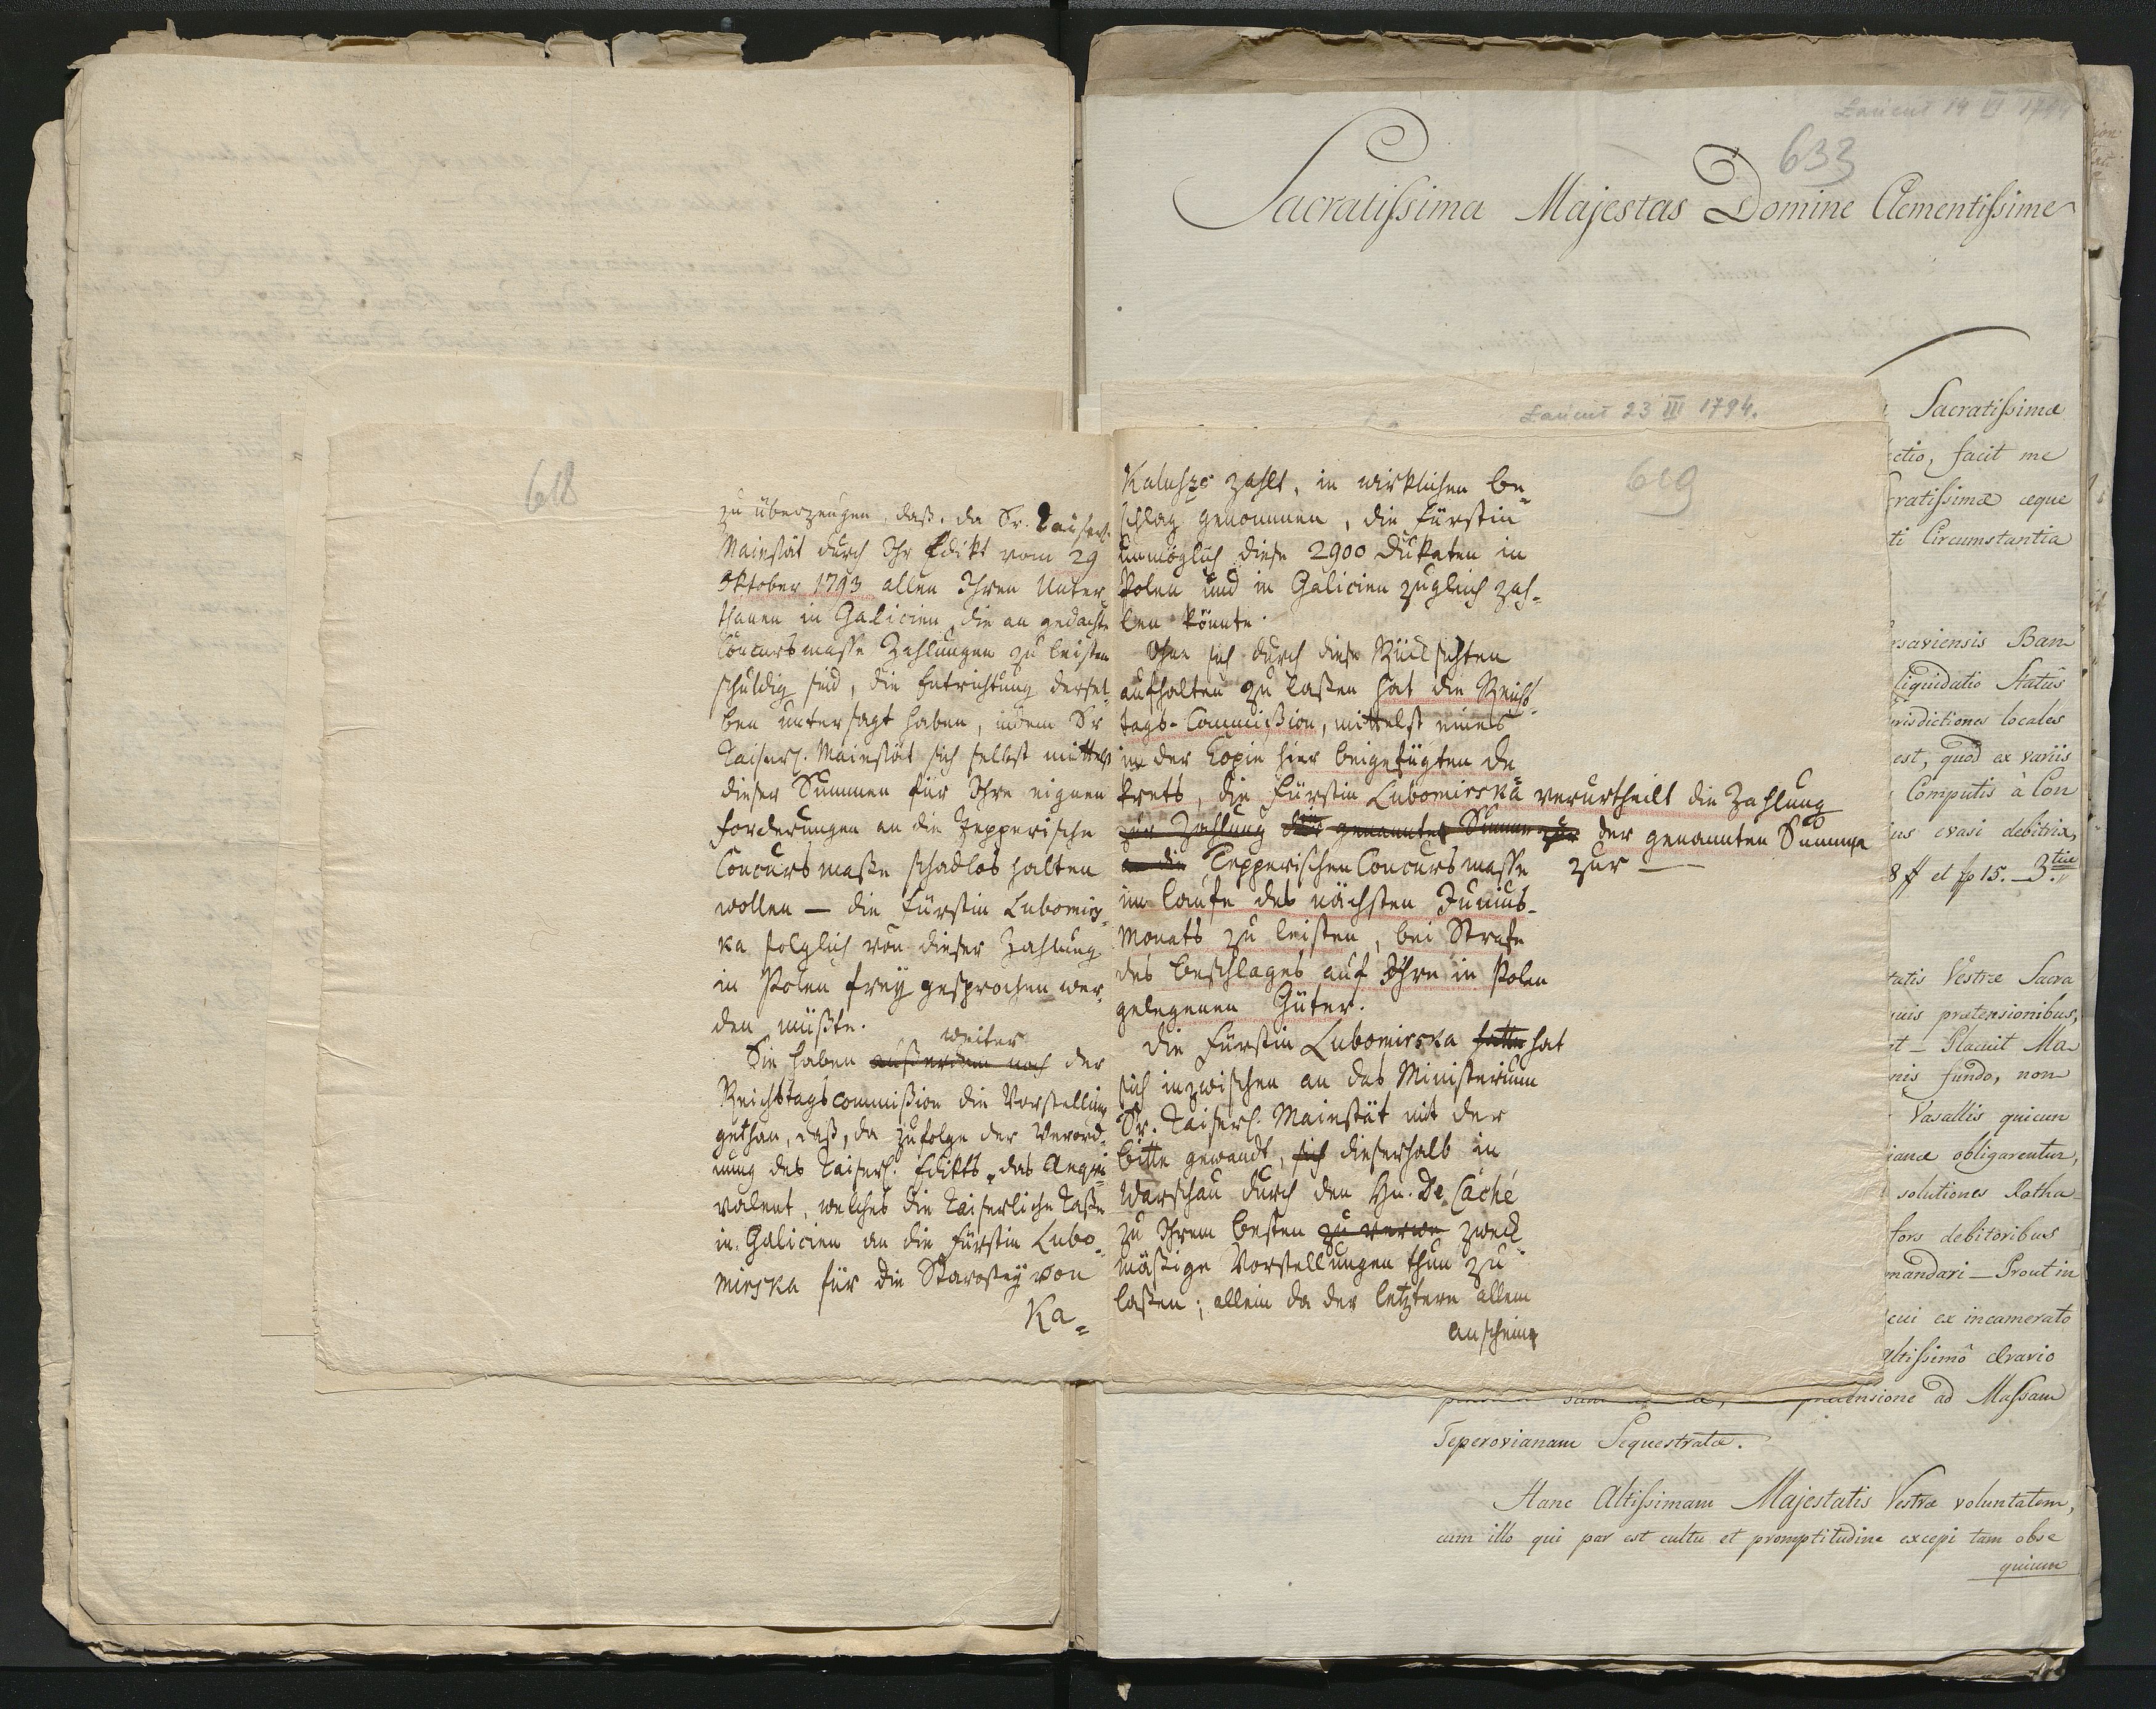 618
zu überzeugen, daß, da Sr. Kaiserl.
Majestät durch Ihr Edikt vom 29
Oktober 1793 allen Ihren Unter-
thanen in Galicien, die an gedachte
Concursmasse Zahlungen zu leisten
schuldig sind, die Entrichtung dersel-
ben untersagt haben, indem Sr
Kaiserl. Majestät sich selbst mittels
dieser Summen für Ihre eignen
Forderungen an die Tepperische
Concursmaße schadlos halten
wollen — die Fürstin Lubomirs-
ka folglich von dieser Zahlung
in Polen frey gesprochen wer-
den müßte.
weiter
Sie haben außerdem noch der
Reichstagscommißion die Vorstellung
gethan, daß, da zufolge der Verord-
nung des Kaiserl. Edikts, das Aequi-
valent, welches die Kaiserliche Kaße
in Galicien an die Fürstin Lubo-
mirska für die Starostey von
Ka-
Lancut 23 III 1794.
619
Kalusze zahlt, in wirklichen Be-
schlag genommen, die Fürstin
unmöglich diese 2900 Dukaten in
Polen und in Galicien zugleich zah-
len könnte.
Ohne sich durch diese Rücksichten
aufhalten zu laßen hat die Reichs-
tags-Commißion, mittelst eines
in der Copie hier beigefügten De-
krets, die Fürstin Lubomirska verurtheilt die Zahlung
zur Zahlung der genannten Summe zur der genannten Summe
an die Tepperischen Concursmasse zur
im Laufe des nächsten Junius-
Monats zu leisten, bei Strafe
des Beschlages auf Ihre in Polen
gelegenen Güter.
Die Fürstin Lubomirska hatte hat
sich inzwischen an das Ministerium
Sr. Kaiserl. Majestät mit der
Bitte gewandt, sich dieserhalb in
Warschau durch den Hn. De Caché
zu Ihrem Besten zu verwe zweck-
mäßige Vorstellungen thun zu
laßen; allein da der letztern allem
Anscheine
Lancut 14 VI 1794
633
Sacratissima Majestas Domine Clementissime
Sacratissimæ
ctio, facit me
ratissimæ æque
ti Circumstantia
saviensis Ban
liquidatio Statûs
risdictiones locales
est, quod ex variis
Computis à Con
us evasi debitrix
8 ff et fp 15. _ 3.tiæ
tatis Vestræ Sacra
uis prætensionibus,
t _ Placuit Ma
nis fundo, non
Vasallis quicun
ianæ obligarentur,
solutiones Ratha
fors debitoribus
mandari _ Prout in
cui ex incamerato
altissimô Ærario
prætensione ad Massam
Teperovianam Sequestratæ.
Hanc Altissimam Majestatis Vestræ voluntatem,
cum illo qui par est cultu et promptitudine excepi tam obse
quium